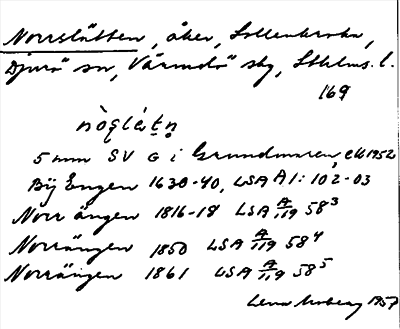 Norrslätten, åker, Sollenkroka,
Djurö sn, Värmdö skg, Sthlms. l.
169
nòqlétn
5 mm SV G i Grundmaren, ek 1952
Bij Engen 1630-40, LSA A 1: 102-03
Norr ängen 1816-18 LSA A/119 58³
Norrängen 1850 LSA A/119 58⁴
Norrängen 1861 LSA A/119 58⁵
Lena Moberg 1957